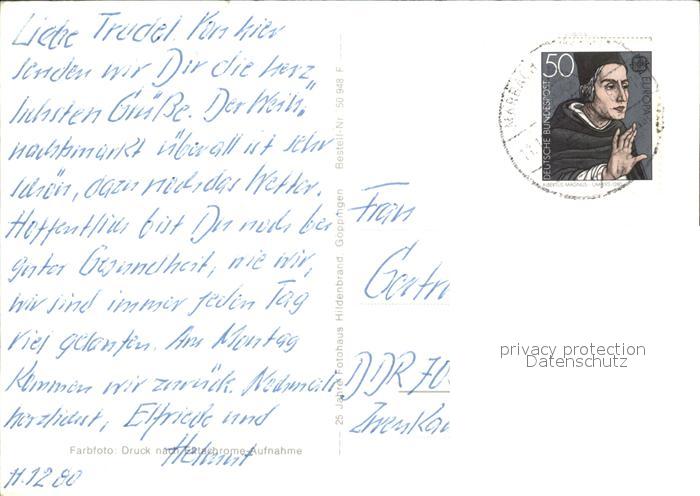 Liebe Trudel. Von hier
senden wir Dir die herz„
lichsten Grüße. Der Weih„
nachtsmarkt überall ist sehr
schön, dazu noch das Wetter.
Hoffentlich bist Du noch bei
guter Gesundheit, wie wir,
wir sind immer jeden Tag
viel gelaufen. Am Montag
kommen wir zurück. Nochmals
herzlichst, Elfriede und
Helmut
11.12.80
Farbfoto: Druck nach Ektachrome-Aufnahme
25 Jahre Fotohaus Hildenbrand Göppingen Bestell-Nr. 50 948 F
50
DEUTSCHE BUNDESPOST
EUROPA
ALBERTUS MAGNUS
MARBACH
Frau
Gertru
DDR 70
privacy protection
Datenschutz